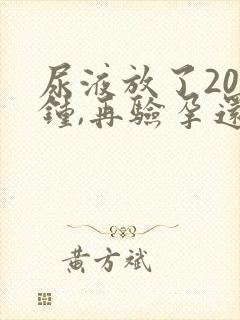 尿液放了20
鐘,再驗孕還
黃方斌